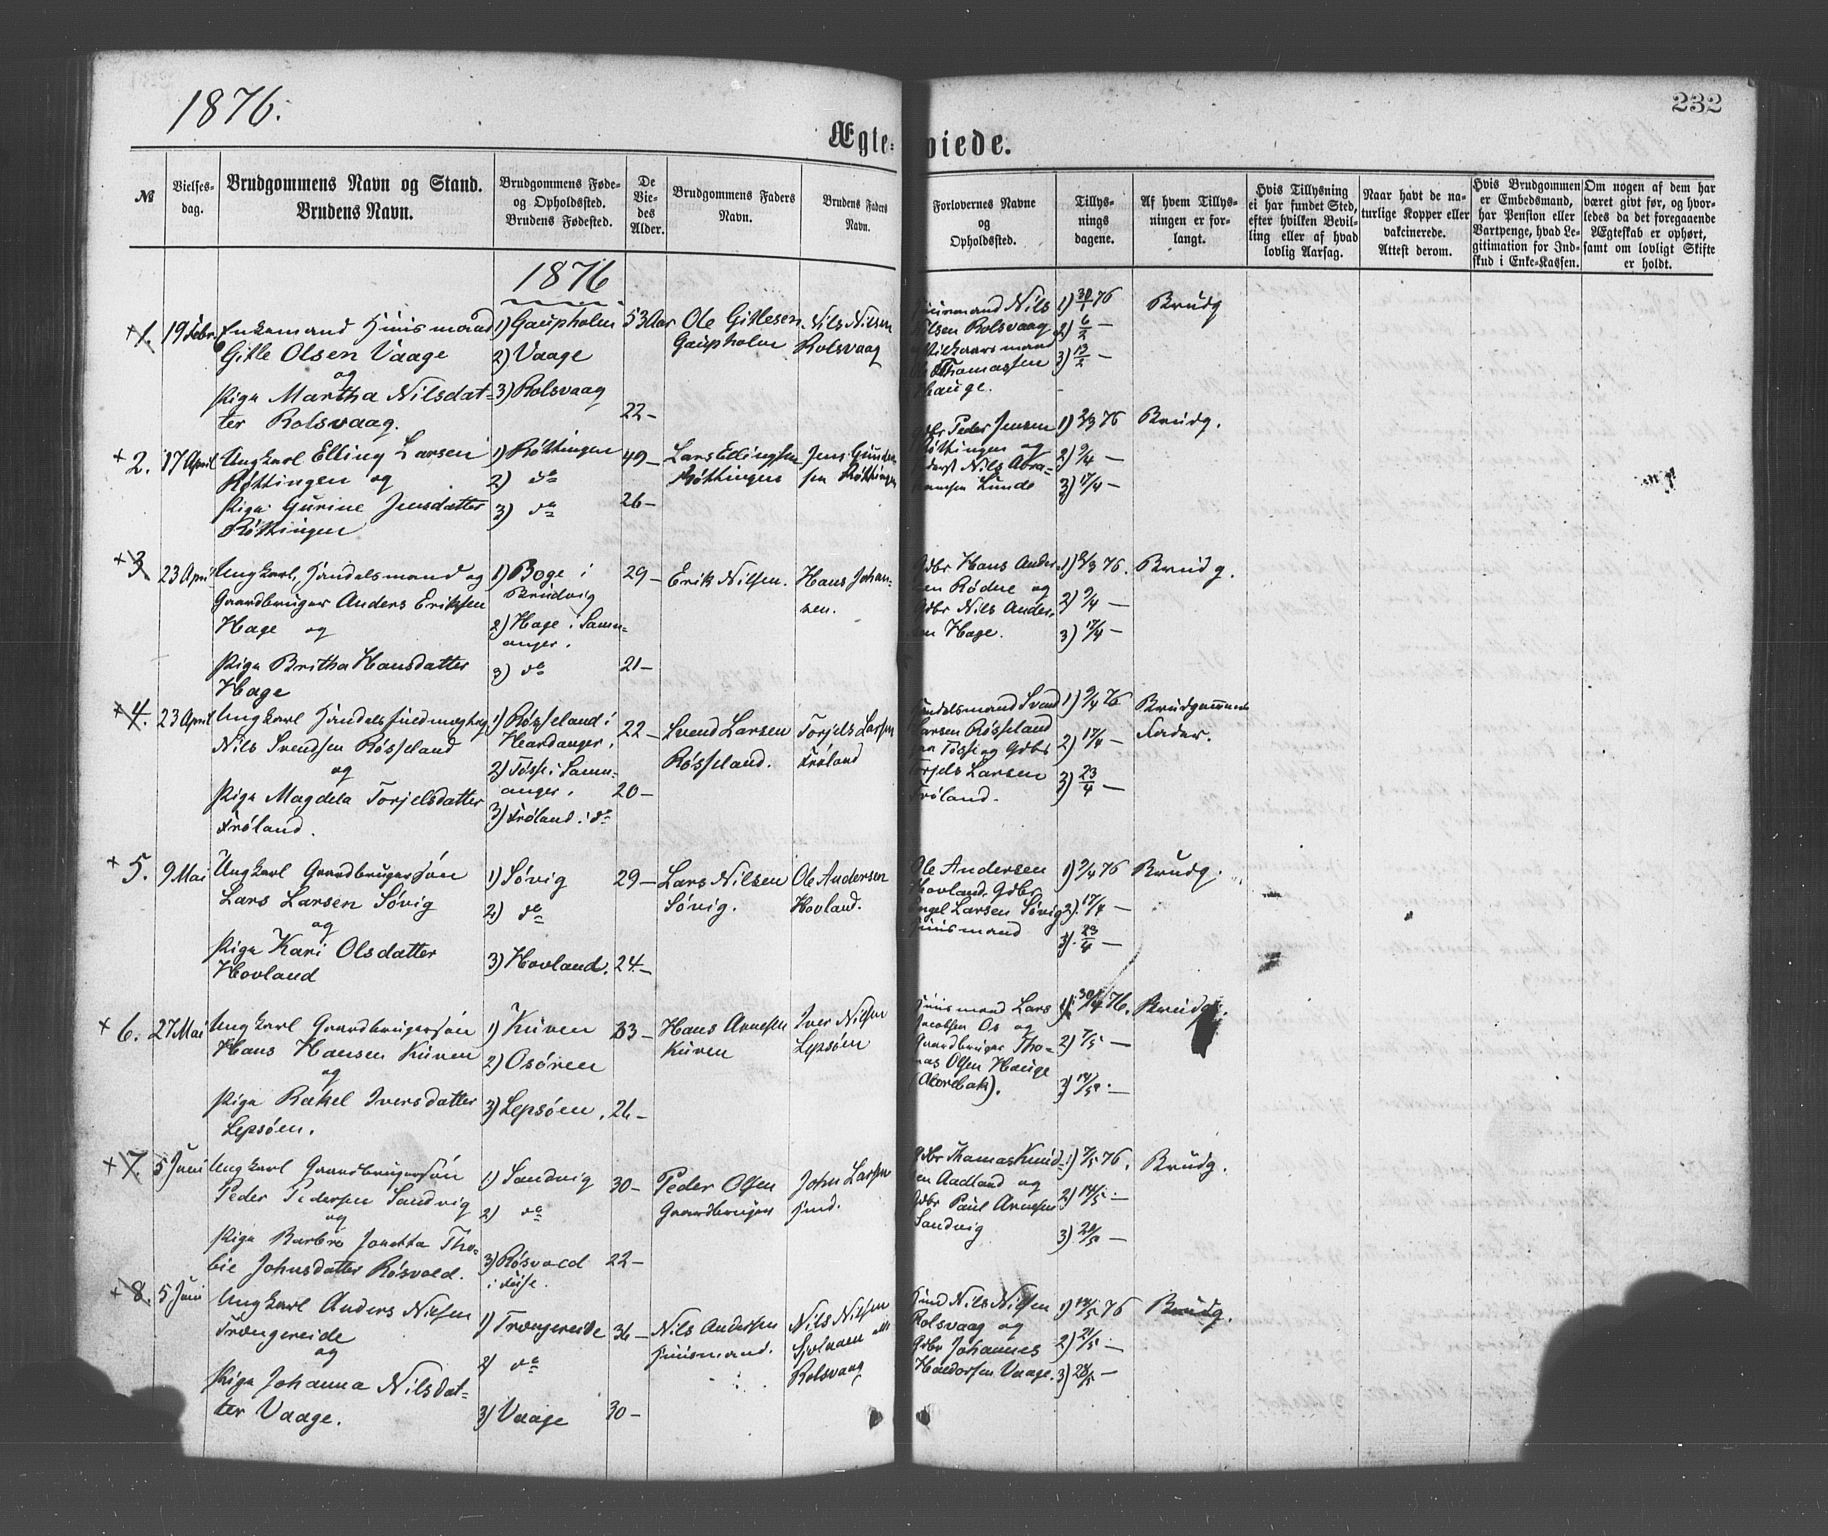 1876.
232
Ægteviede.
№
Vielses-
dag.
Brudgommens Navn og Stand.
Brudens Navn.
Brudgommens Føde-
og Opholdssted.
Brudens Fødested.
De
Vie-
des
Alder.
Brudgommens Faders
Navn.
Brudens Faders
Navn.
Forlovernes Navne
og
Opholdssted.
Tillys-
nings
dagene.
Af hvem Tillys-
ningen er for-
langt.
Hvis Tillysning
ei har fundet Sted,
efter hvilken Bevil-
ling eller af hvad
lovlig Aarsag.
Naar havt de na-
turlige Kopper eller
vakcinerede.
Attest derom.
Hvis Brudgommen
er Embedsmand,
har Pension eller
Vartpenge, hvad Le-
gitimation for Ind-
skud i Enke-Kassen.
Om nogen af dem har
været givt før, og hvor-
ledes da det foregaaende
Ægteskab er ophørt,
samt om lovligt Skifte
er holdt.
1876
+ 1. 19 Febr
Enkemand Huusmand
Gitle Olsen Vaage
og
Pige Martha Nilsdat-
ter Rolsvaag.
1) Gaupholm
2) Vaage
3) Rolsvaag
53 Aar
22 -
Ole Gitlesen
Gaupholm
Nils Nilsen
Rolsvaag
Huusmand Nils
Nilsen Rolsvaag
Thomassen
Hauge.
1) 30/1 76
2) 6/2 -
3) 13/2 -
Brudg
+ 2. 17 April
Ungkarl Elling Larsen
Røttingen og
Pige Gurine Jensdatter
Røttingen
1) Røttingen
2) do
3) do
49 -
26 -
Lars Ellingsen
Røttingen
Jens Gunder-
sen Røttingen
Gdbr Peder Jensen
Røttingen og
Nils Abra-
hamsen Lunde
1) 2/3 76
2) 9/4 -
3) 17/4 -
Brudg.
+ 3. 23 April
Ungkarl, Handelsmand og
Gaardbruger Anders Eriksen
Hage og
Pige Britha Hansdatter
Hage
1) Boge i
Brudvig
2) Hage i Samn-
anger.
3) do
29 -
21 -
Erik Nilsen.
Hans Johan-
nen.
Gdbr Hans Ander-
sen Rødne og
Gdbr Nils Anders
sen Hage.
1) 2/3 76.
2) 9/4 -
3) 17/4 -
Brudg.
+ 4. 23 April
Ungkarl Handelsfuldmægtig
Nils Svendsen Røsseland
og
Pige Magdela Torjelsdatter
Frøland.
1) Røsseland i
Hardanger.
2) Tøsse i Samn-
anger.
3) Frøland i do
22 -
20 -
Svend Larsen
Røsseland.
Torjels Larsen
Frøland
Handelsmand Svend
Larsen Røsseland
paa Tøsse og Gdbr
Torjels Larsen
Frøland.
1) 9/4 76
2) 17/4 -
3) 23/4 -
Brudgommens
Fader.
+ 5. 9 Mai
Ungkarl Gaardbrugersøn
Lars Larsen Søvig
og
Pige Kari Olsdatter
Hovland
1) Søvig
2) do
3) Hovland.
29 -
24 -
Lars Nilsen
Søvig.
Ole Andersen
Hovland.
Ole Andersen
Hovland. Gdbr
Engel Larsen Søvig
Huusmand
1) 9/4 76
2) 17/4 -
3) 23/4 -
Brudg.
+ 6. 27 Mai
Ungkarl Gaardbrugersøn
Hans Hansen Kuven
og
Pige Rakel Iversdatter
Lepsøen.
1) Kuven
2) Osøren
3) Lepsøen.
33 -
26 -
Hans Arnesen
Kuven
Iver Nilsen
Lepsøen
Huusmand Lars
Jacobsen Os og
Gaardbruger Tho-
mas Olsen Hauge
1) 30/4 76.
2) 7/5 -
3) 14/5 -
Brudg.
+ 7. 5 Juni
Ungkarl Gaardbrugersøn
Peder Pedersen Sandvig
og
Pige Barbro Jonetta Tho-
bie Johnsdatter Røsvold.
1) Sandvig
2) do
3) Røsvold
i Fuse.
30 -
22 -
Peder Olsen
Gaardbruger
John Larsen
Huusd.
Gdbr Thomas Knud-
sen Aadland og
Gdbr Paul Arnesen
Sandvig
1) 7/5 76.
2) 14/5 -
3) 21/5 -
Brudg.
+ 8. 5 Juni
Ungkarl Anders Nilsen
Trængereide
og
Pige Johanna Nilsdat-
ter Vaage.
1) Trængereide
2) do
3) Vaage
36 -
30 -
Nils Andersen
Huusmand.
Nils Nilsen
Rolsvaag
Nils Nilsen
Rolsvaag og
Gdbr Johannes
Haldorsen Vaage.
1) 14/5 76
2) 21/5 -
3) 28/5 -
Brudg.